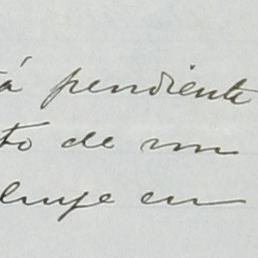 tá pendiente
to de un
luye en